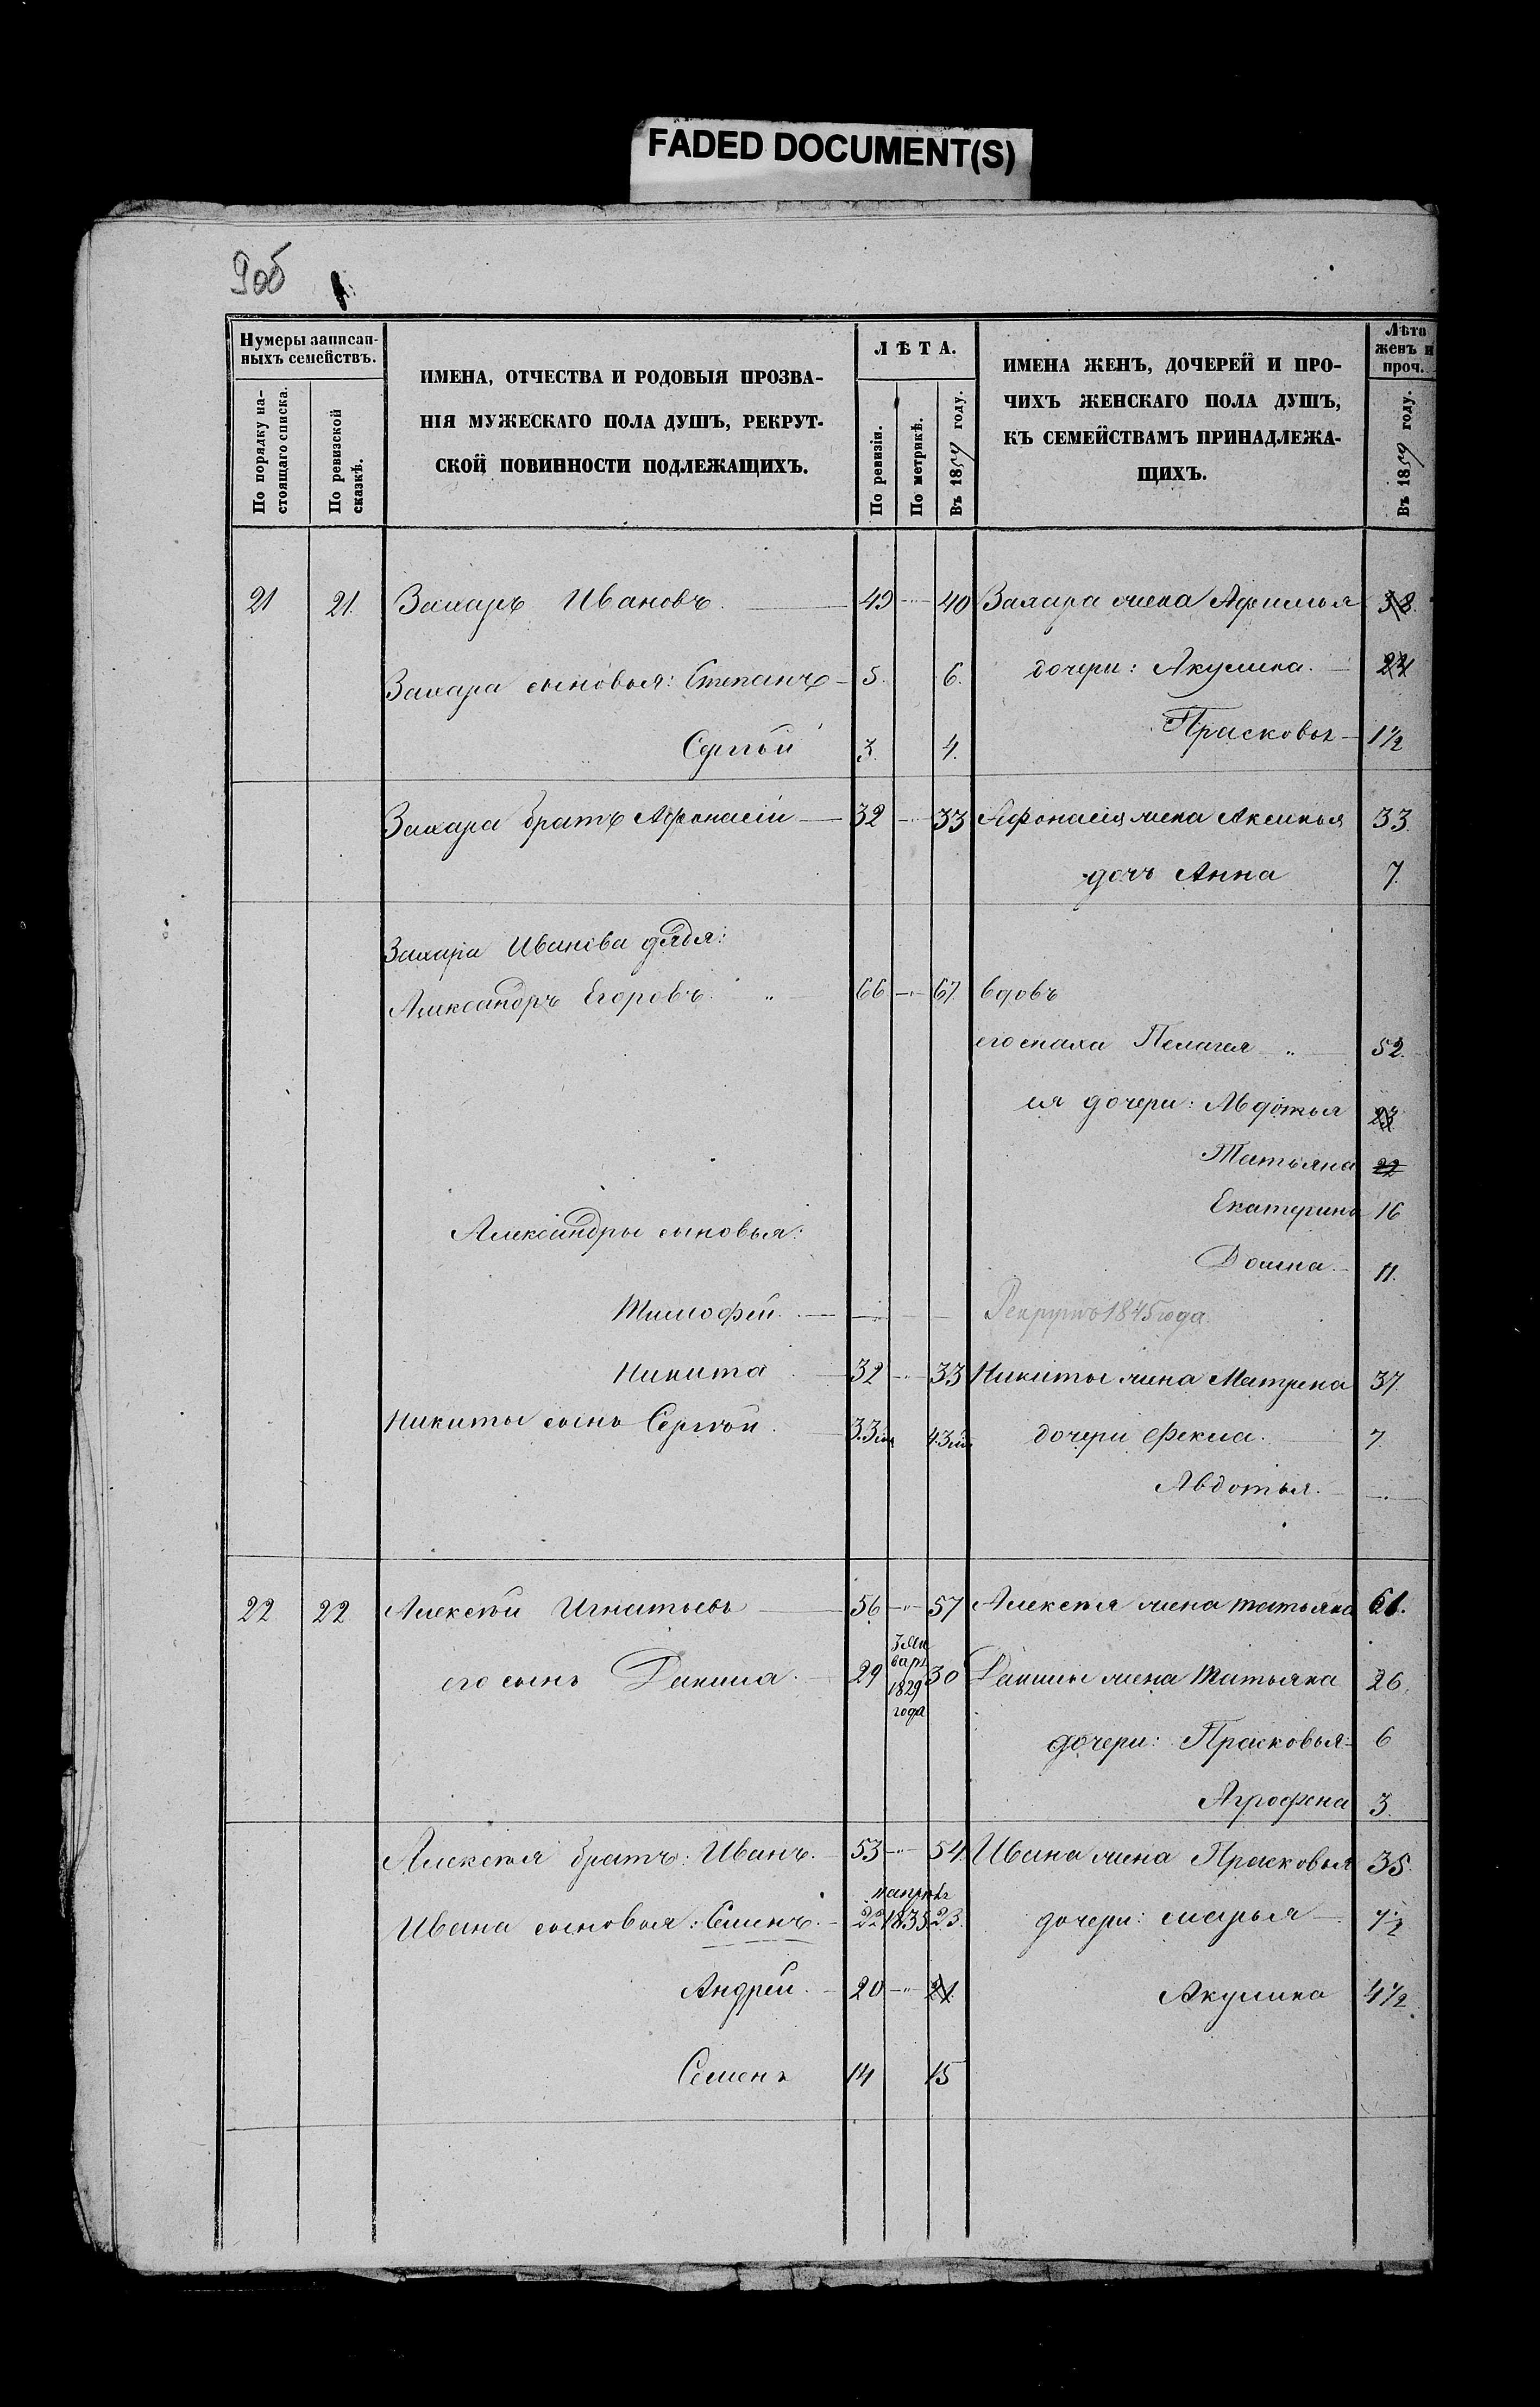 FADED DOCUMENT(S)
9об
Нумеры записан-
ныхъ семействъ.
По порядку на-
стоящаго списка.
По ревизской
сказкѣ.
ИМЕНА, ОТЧЕСТВА И РОДОВЫЯ ПРОЗВА-
НІЯ МУЖЕСКАГО ПОЛА ДУШЪ, РЕКРУТ-
СКОЙ ПОВИННОСТИ ПОДЛЕЖАЩИХЪ.
ЛѢТА.
По ревизіи.
По метрикѣ.
Въ 1859 году.
ИМЕНА ЖЕНЪ, ДОЧЕРЕЙ И ПРО-
ЧИХЪ ЖЕНСКАГО ПОЛА ДУШЪ,
КЪ СЕМЕЙСТВАМЪ ПРИНАДЛЕЖА-
ЩИХЪ.
Лѣта
женъ и
проч.
Въ 1859 году.
21 21. Захаръ Ивановъ. 40 Захара жена Афимья 38.
Захара сыновья: Степанъ 5. 6. дочери: Акулина 24
Сергѣй 3. 4. Прасковья 1½
Захара братъ Афонасій 32 33 Афонасія жена Аксинья 33.
дочь Анна 7.
Захара Иванова дядя:
Александръ Егоровъ. 66 67. вдовъ
его сноха Пелагея 52.
ея дочери: Авдотья 23
Татьяна 22
Екатерина 16
Александры сыновья: Домна 11.
Тимофей. Рекрутъ 1845 года.
Никита 32 33 Никиты жена Матрена 37.
Никиты сынъ Сергѣй. дочери Фекла. 7.
Авдотья.
22 22 Алексѣй Игнатьевъ 56 57 Алексѣя жена татьяна 61.
его сынъ Данила. 29 3 Ян
варя
1829
года 30 Данилы жена Татьяна 26.
дочери: Прасковья 6
Агрофена 3.
Алексѣя братъ: Иванъ. 53 54 Ивана жена Прасковья 35.
Ивана сыновья: Семенъ. 22 1835 23. дочери: марья
Андрей. 20 21. Акулина 4½
Семенъ 14 15